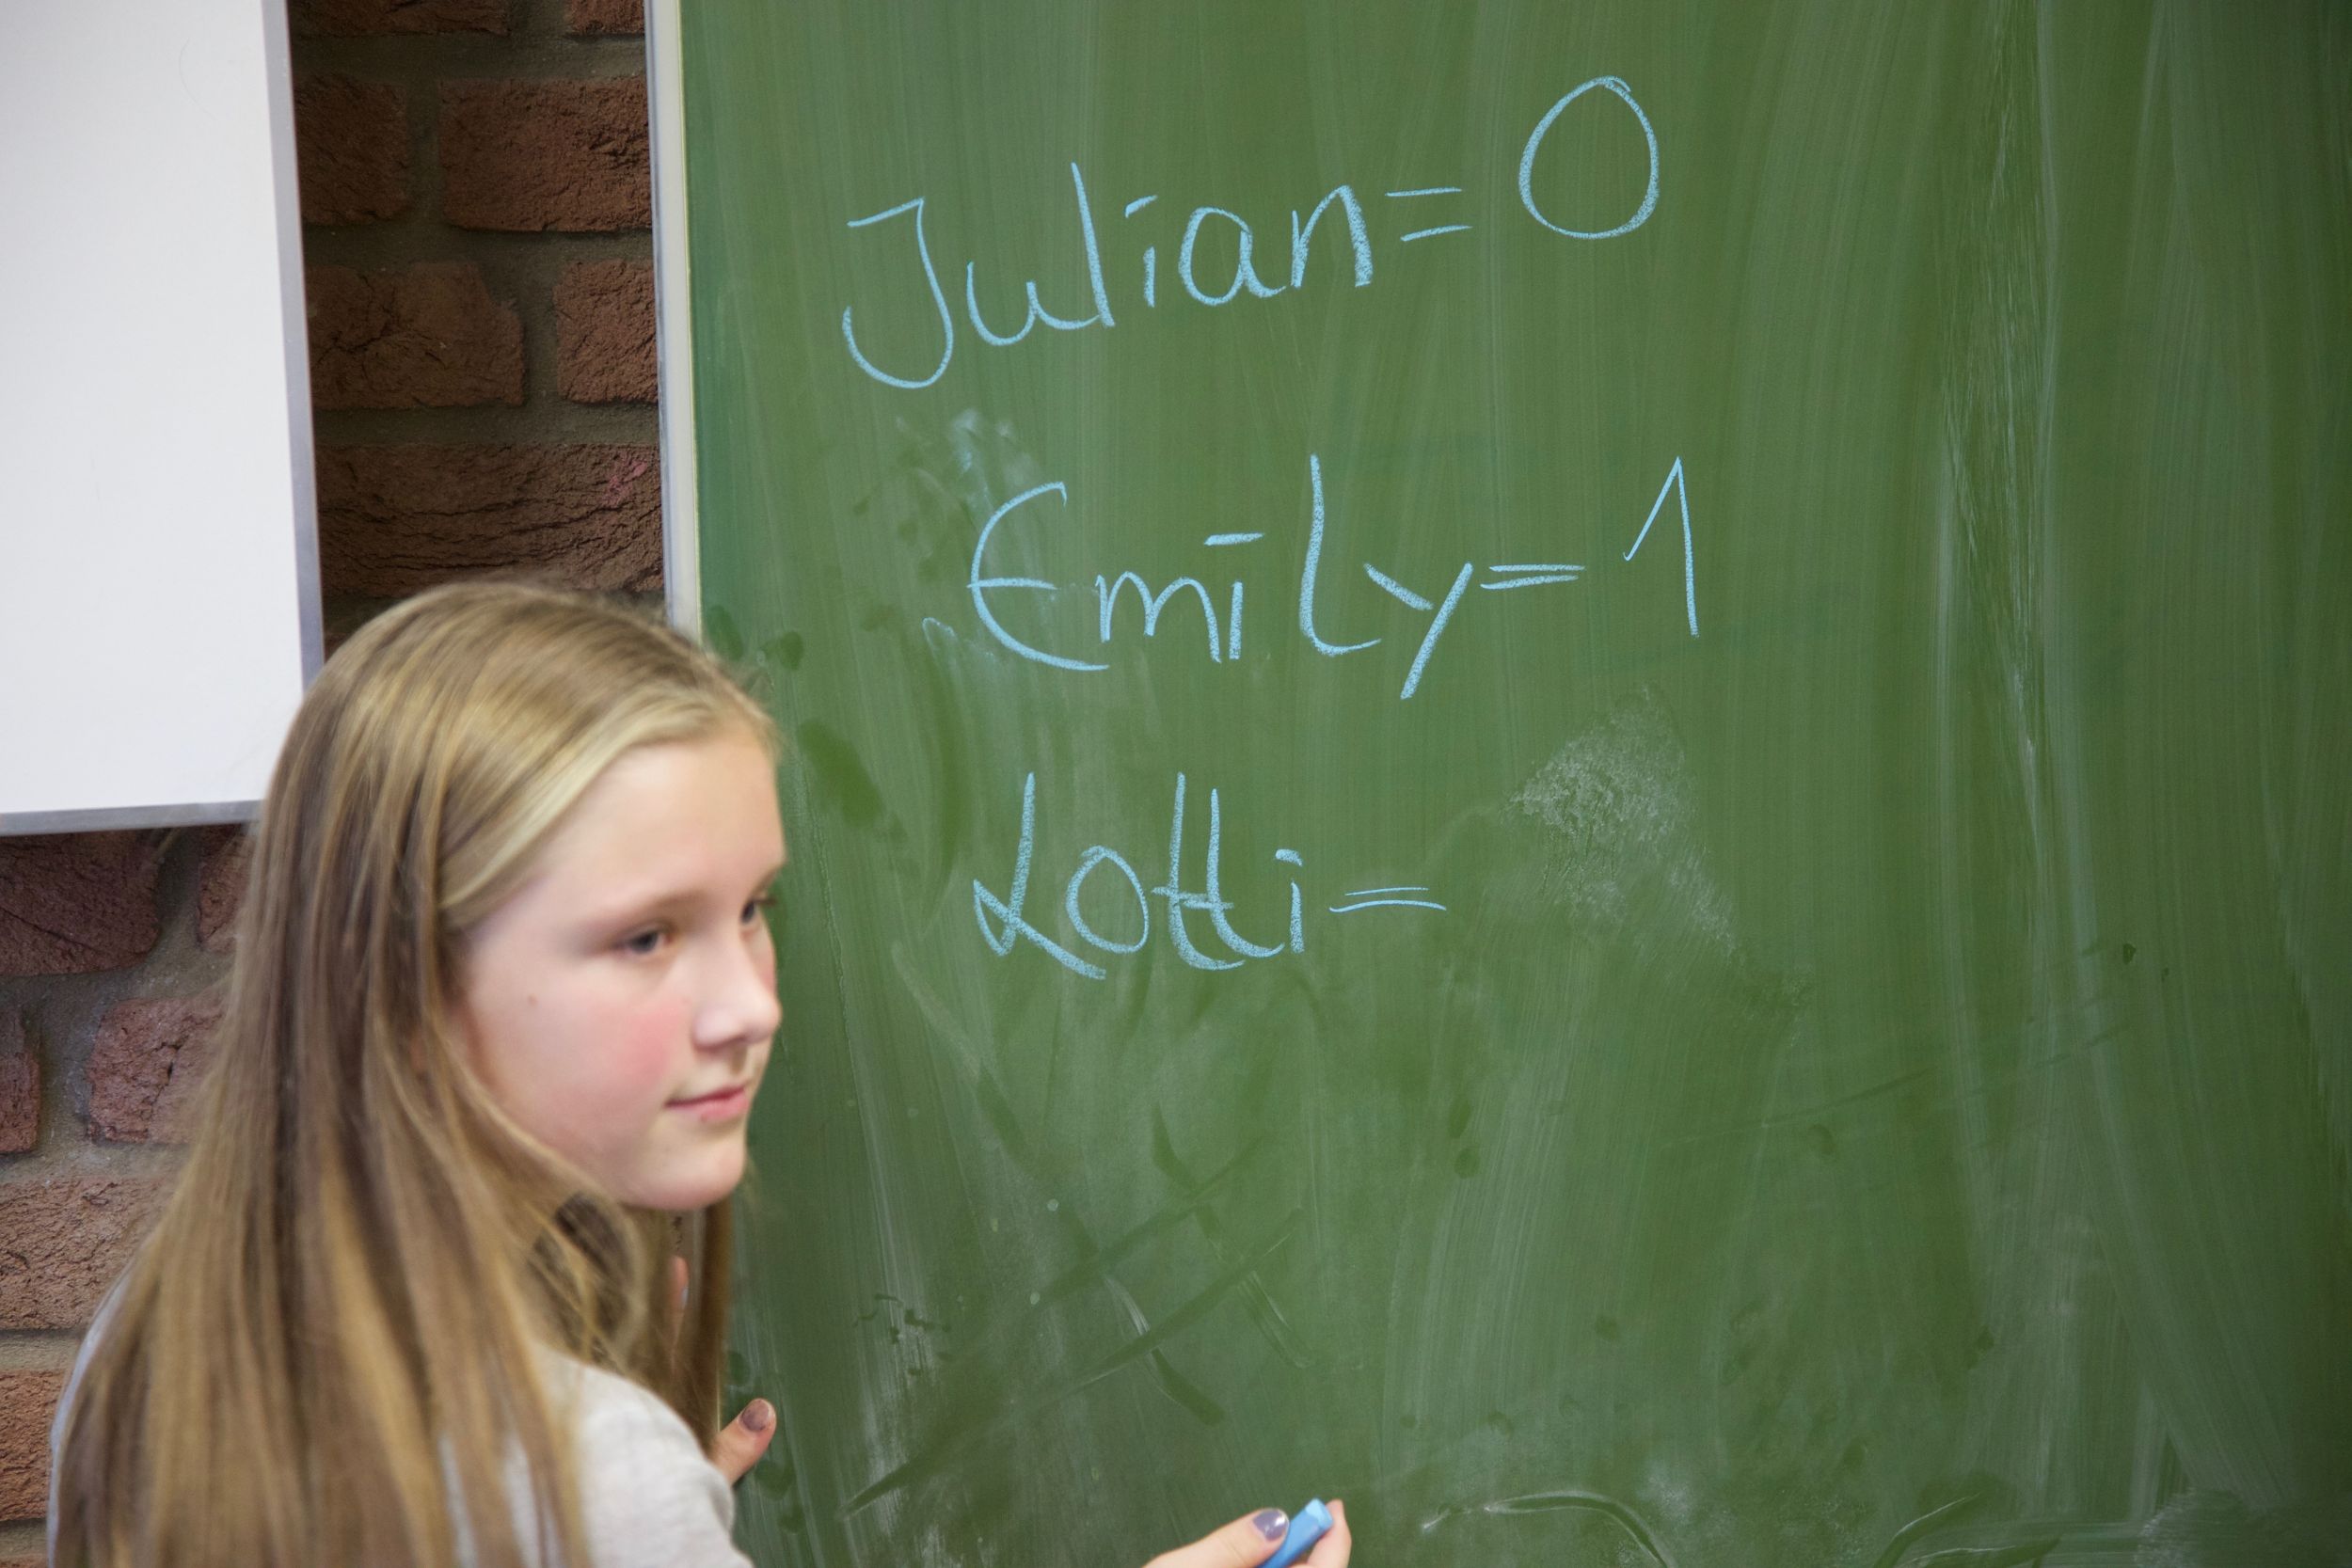 Julian= 0
Emily= 1
Lotti=